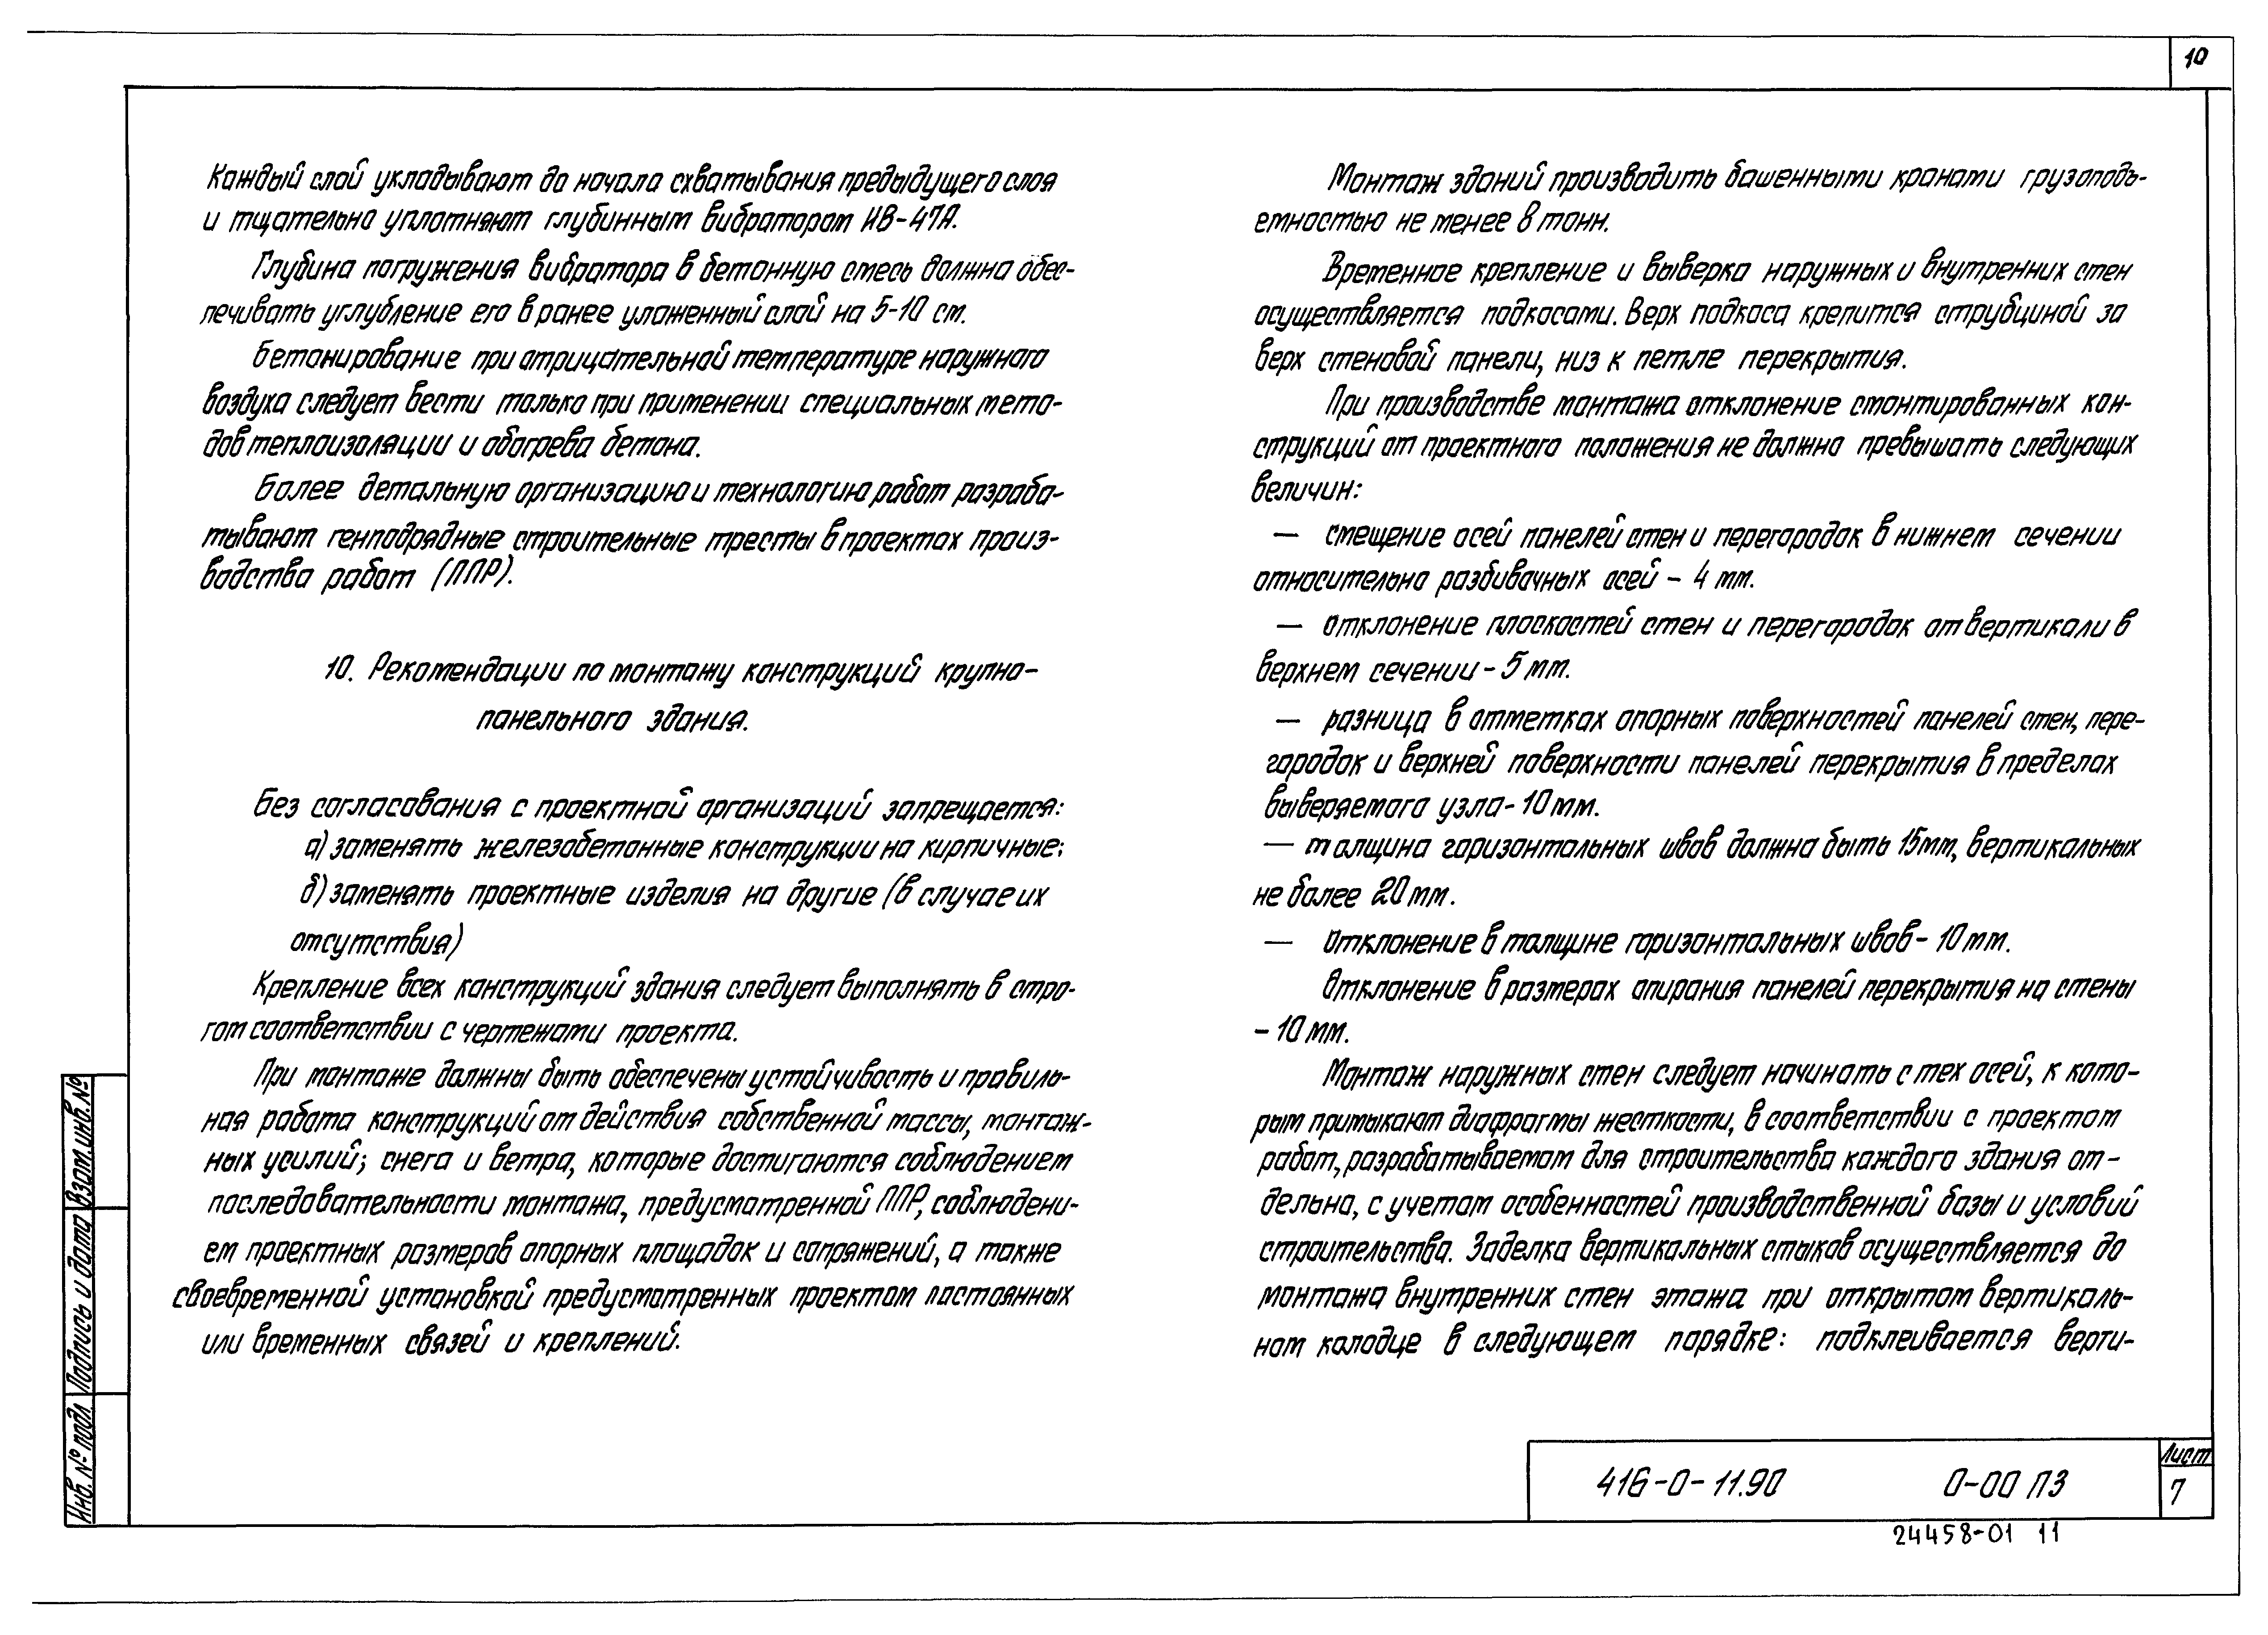 10
Каждый слой укладывают до начала схватывания предыдущего слоя
и тщательно уплотняют глубинным вибратором ИВ-47А.
Глубина погружения вибратора в бетонную смесь должна обес-
печивать углубление его в ранее уложенный слой на 5-10 см.
Бетонирование при отрицательной температуре наружного
воздуха следует вести только при применении специальных мето-
дов теплоизоляции и обогрева бетона.
Более детальную организацию и технологию работ разраба-
тывают генподрядные строительные тресты в проектах произ-
водства работ (ППР).
10. Рекомендации по монтажу конструкций крупно-
панельного здания.
Без согласования с проектной организаций запрещается:
а) заменять железобетонные конструкции на кирпичные;
б) заменять проектные изделия на другие (в случае их
отсутствия)
Крепление всех конструкций здания следует выполнять в стро-
гом соответствии с чертежами проекта.
При монтаже должны быть обеспечены устойчивость и правиль-
ная работа конструкций от действия собственной массы, монтаж-
ных усилий; снега и ветра, которые достигаются соблюдением
последовательности монтажа, предусмотренной ППР, соблюдени-
ем проектных размеров опорных площадок и сопряжений, а также
своевременной установкой предусмотренных проектом постоянных
или временных связей и креплений.
Монтаж зданий производить башенными кранами грузоподъ-
емностью не менее 8 тонн.
Временное крепление и выверка наружных и внутренних стен
осуществляется подкосами. Верх подкоса крепится струбциной за
верх стеновой панели, низ к петле перекрытия.
При производстве монтажа отклонение смонтированных кон-
струкций от проектного положения не должно превышать следующих
величин:
— смещение осей панелей стен и перегородок в нижнем сечении
относительно разбивочных осей - 4 мм.
— отклонение плоскостей стен и перегородок от вертикали в
верхнем сечении - 5 мм.
— разница в отметках опорных поверхностей панелей стен, пере-
городок и верхней поверхности панелей перекрытия в пределах
выверяемого узла - 10 мм.
— толщина горизонтальных швов должна быть 15мм, вертикальных
не более 20 мм.
— отклонение в толщине горизонтальных швов - 10 мм.
Отклонение в размерах опирания панелей перекрытия на стены
- 10 мм.
Монтаж наружных стен следует начинать с тех осей, к кото-
рым примыкают диафрагмы жесткости, в соответствии с проектом
работ, разрабатываемом для строительства каждого здания от-
дельно, с учетом особенностей производственной базы и условий
строительства. Заделка вертикальных стыков осуществляется до
монтажа внутренних стен этажа при открытом вертикаль-
ном колодце в следующем порядке: подклеивается верти-
Инв. № подл.
Подпись и дата
Взам. инв. №
416-0-11.90
0-00 ПЗ
Лист
7
24458-01 11